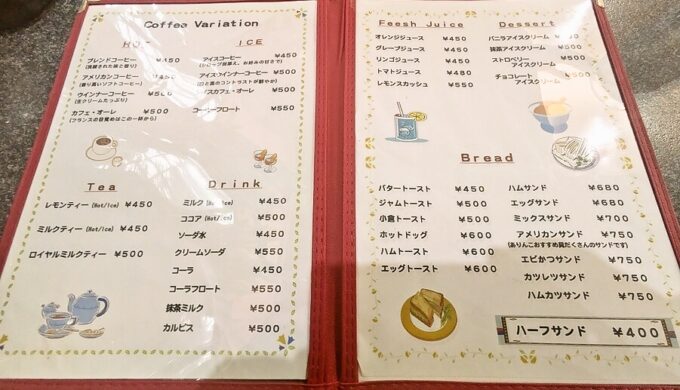 Coffea Variation
HOT
ブレンドコーヒー ¥450
アメリカンコーヒー ¥450
(香り高いソフトコーヒー)
ウインナーコーヒー ¥500
(生クリームたっぷり)
カフェ・オーレ ¥500
(フランスの目覚めはこの一杯から)
ICE
アイスコーヒー ¥450
アイスウインナーコーヒー ¥500
(白と黒のコントラストが鮮やか)
アイスカフェ・オーレ ¥500
コーヒーフロート ¥550
Tea
レモンティー (Hot/Ice) ¥450
ミルクティー (Hot/Ice) ¥450
ロイヤルミルクティー ¥500
Drink
ミルク (Hot/Ice) ¥450
ココア (Hot/Ice) ¥500
ソーダ水 ¥450
クリームソーダ ¥550
コーラ ¥450
コーラフロート ¥550
抹茶ミルク ¥500
カルピス ¥500
Feesh Juice
オレンジジュース ¥450
グレープジュース ¥450
リンゴジュース ¥450
トマトジュース ¥480
レモンスカッシュ ¥550
Dessert
バニラアイスクリーム
抹茶アイスクリーム ¥500
ストロベリー
アイスクリーム ¥500
チョコレート
アイスクリーム ¥500
Bread
バタートースト ¥450
ジャムトースト ¥500
小倉トースト ¥500
ホットドッグ ¥600
ハムトースト ¥600
エッグトースト ¥600
ハムサンド ¥680
エッグサンド ¥680
ミックスサンド ¥700
アメリカンサンド ¥750
(ありんこおすすめ具だくさんのサンドです)
エビかつサンド ¥750
カツレツサンド ¥750
ハムカツサンド ¥750
ハーフサンド ¥400